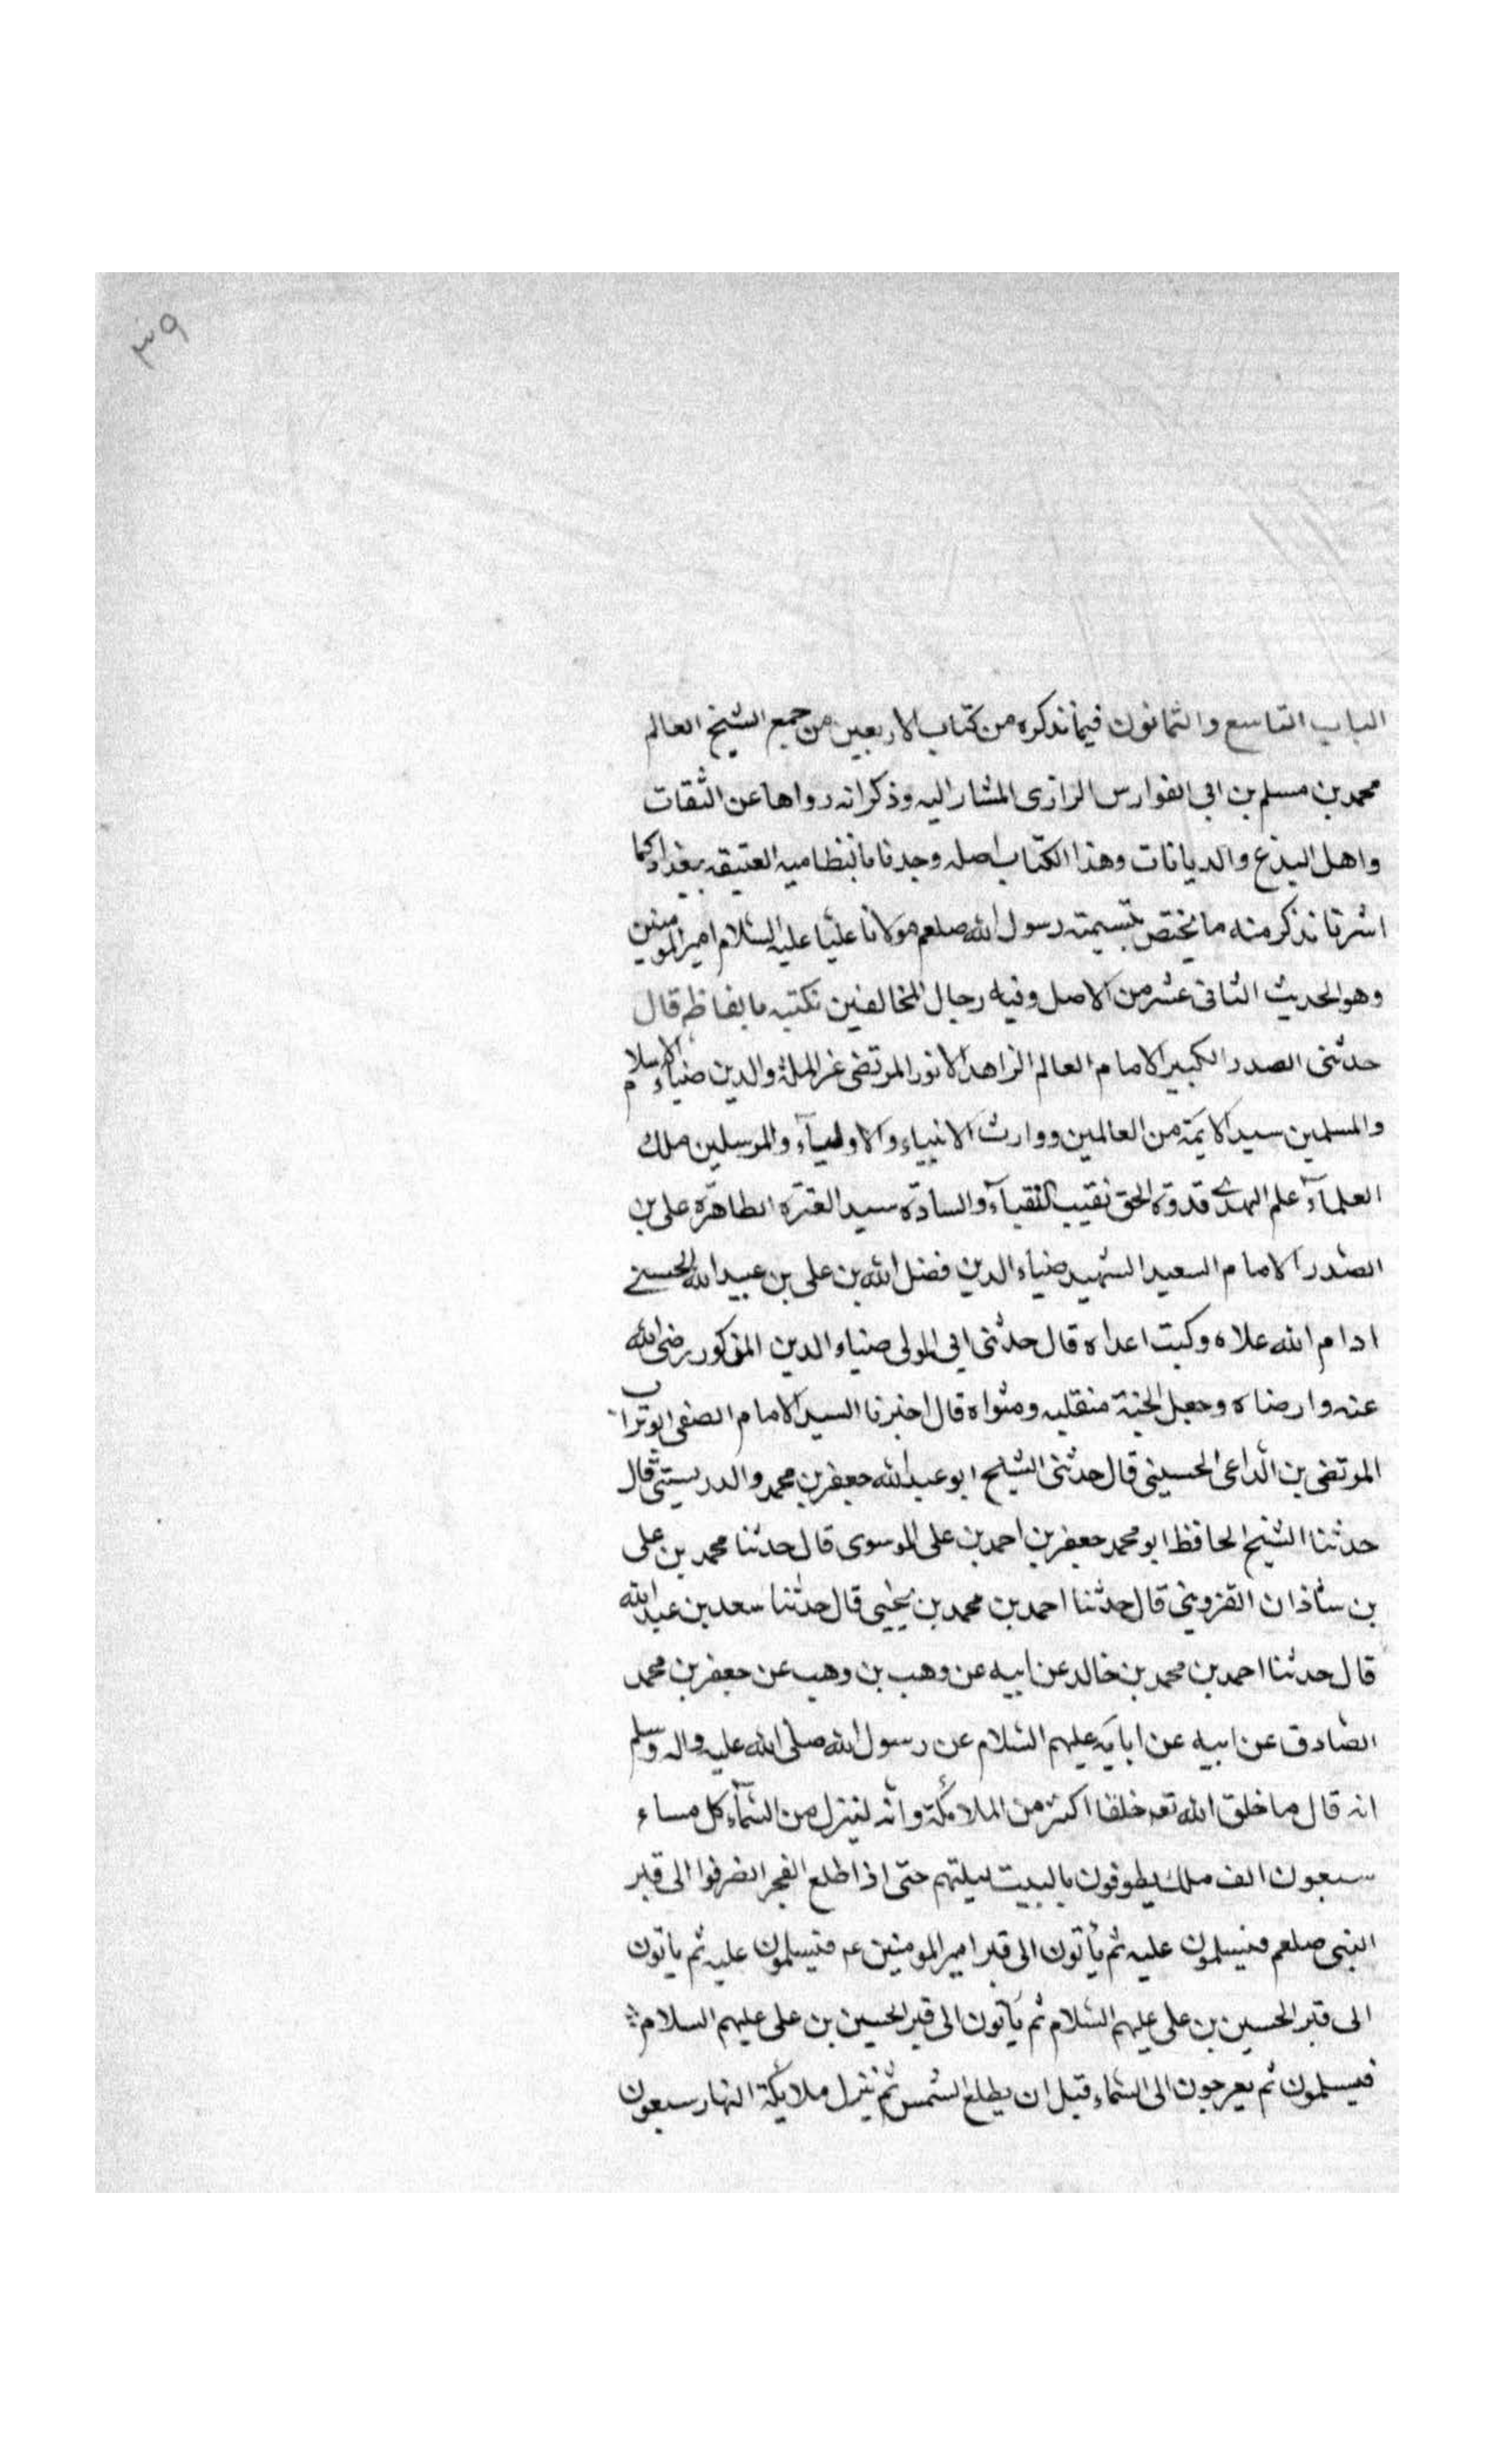 ٣٩
الباب التاسع والثمانون فيما نذكره من كتاب الاربعين من جمع الشيخ العالم
محمد بن مسلم بن ابى الفوارس الرازى المشار اليه وذكر انه رواها عن الثقات
واهل البذع والديانات وهذا الكتاب اصله وجدنا بالنظاميه العتيقه ببغداد كما
اشرنا نذكر منه ما يختص بتسيمته رسول الله صلعم مولانا عليا عليه السلام امير المومنين
وهو الحديث الثانى عشر من الاصل وفيه رجال المخالفين نكتبه بالفاظه قال
حدثنى الصدر الكبير الامام العالم الزاهد الانور المرتضى عز الملة والدين ضياء الاسلام
والمسلمين سيد الايمة من العالمين ووارث الانبياء والاولياء والمرسلين ملك
العلماء علم الهدى قدوة الحق نقيب النقباء والسادة سيد العترة الطاهرة على بن
الصدر الامام السعيد الشهيد ضياء الدين فضل الله بن على بن عبيد الله الحسنى
ادام الله علاه وكبت اعداه قال حدثنى ابى المولى ضياء الدين المذكور رضى الله
عنه وارضاه وجعل الجنة منقلبه ومثواه قال اخبرنا السيد الامام الصفى ابو تراب
المرتضى بن الداعى الحسينى قال حدثنى الشيخ ابو عبد الله جعفر بن محمد والدريستى قال
حدثنا الشيخ الحافظ ابو محمد جعفر بن احمد بن على الموسوى قال حدثنا محمد بن على
بن شاذان القزوينى قال حدثنا احمد بن محمد بن يحيى قال حدثنا سعد بن عبد الله
قال حدثنا احمد بن محمد بن خالد عن ابيه عن وهب بن وهب عن جعفر بن محمد
الصادق عن ابيه عن ابايه عليهم السلام عن رسول الله صلى الله عليه واله وسلم
انه قال ما خلق الله تعه خلقا اكثر من الملائكة وانه لينزل من السماء كل مساء
سبعون الف ملك يطوفون بالبيت ليلتهم حتى اذا طلع الفجر انصرفوا الى قبر
النبى صلعم فيسلمون عليه ثم يأتون الى قبر امير المومنين عم فيسلمون عليه ثم يأتون
الى قبر الحسين بن على عليهم السلام ثم يأتون الى قبر الحسين بن على عليهم السلام
فيسلمون ثم يعرجون الى السماء قبل ان يطلع الشمس ثم ينزل ملايكة النهار سبعون